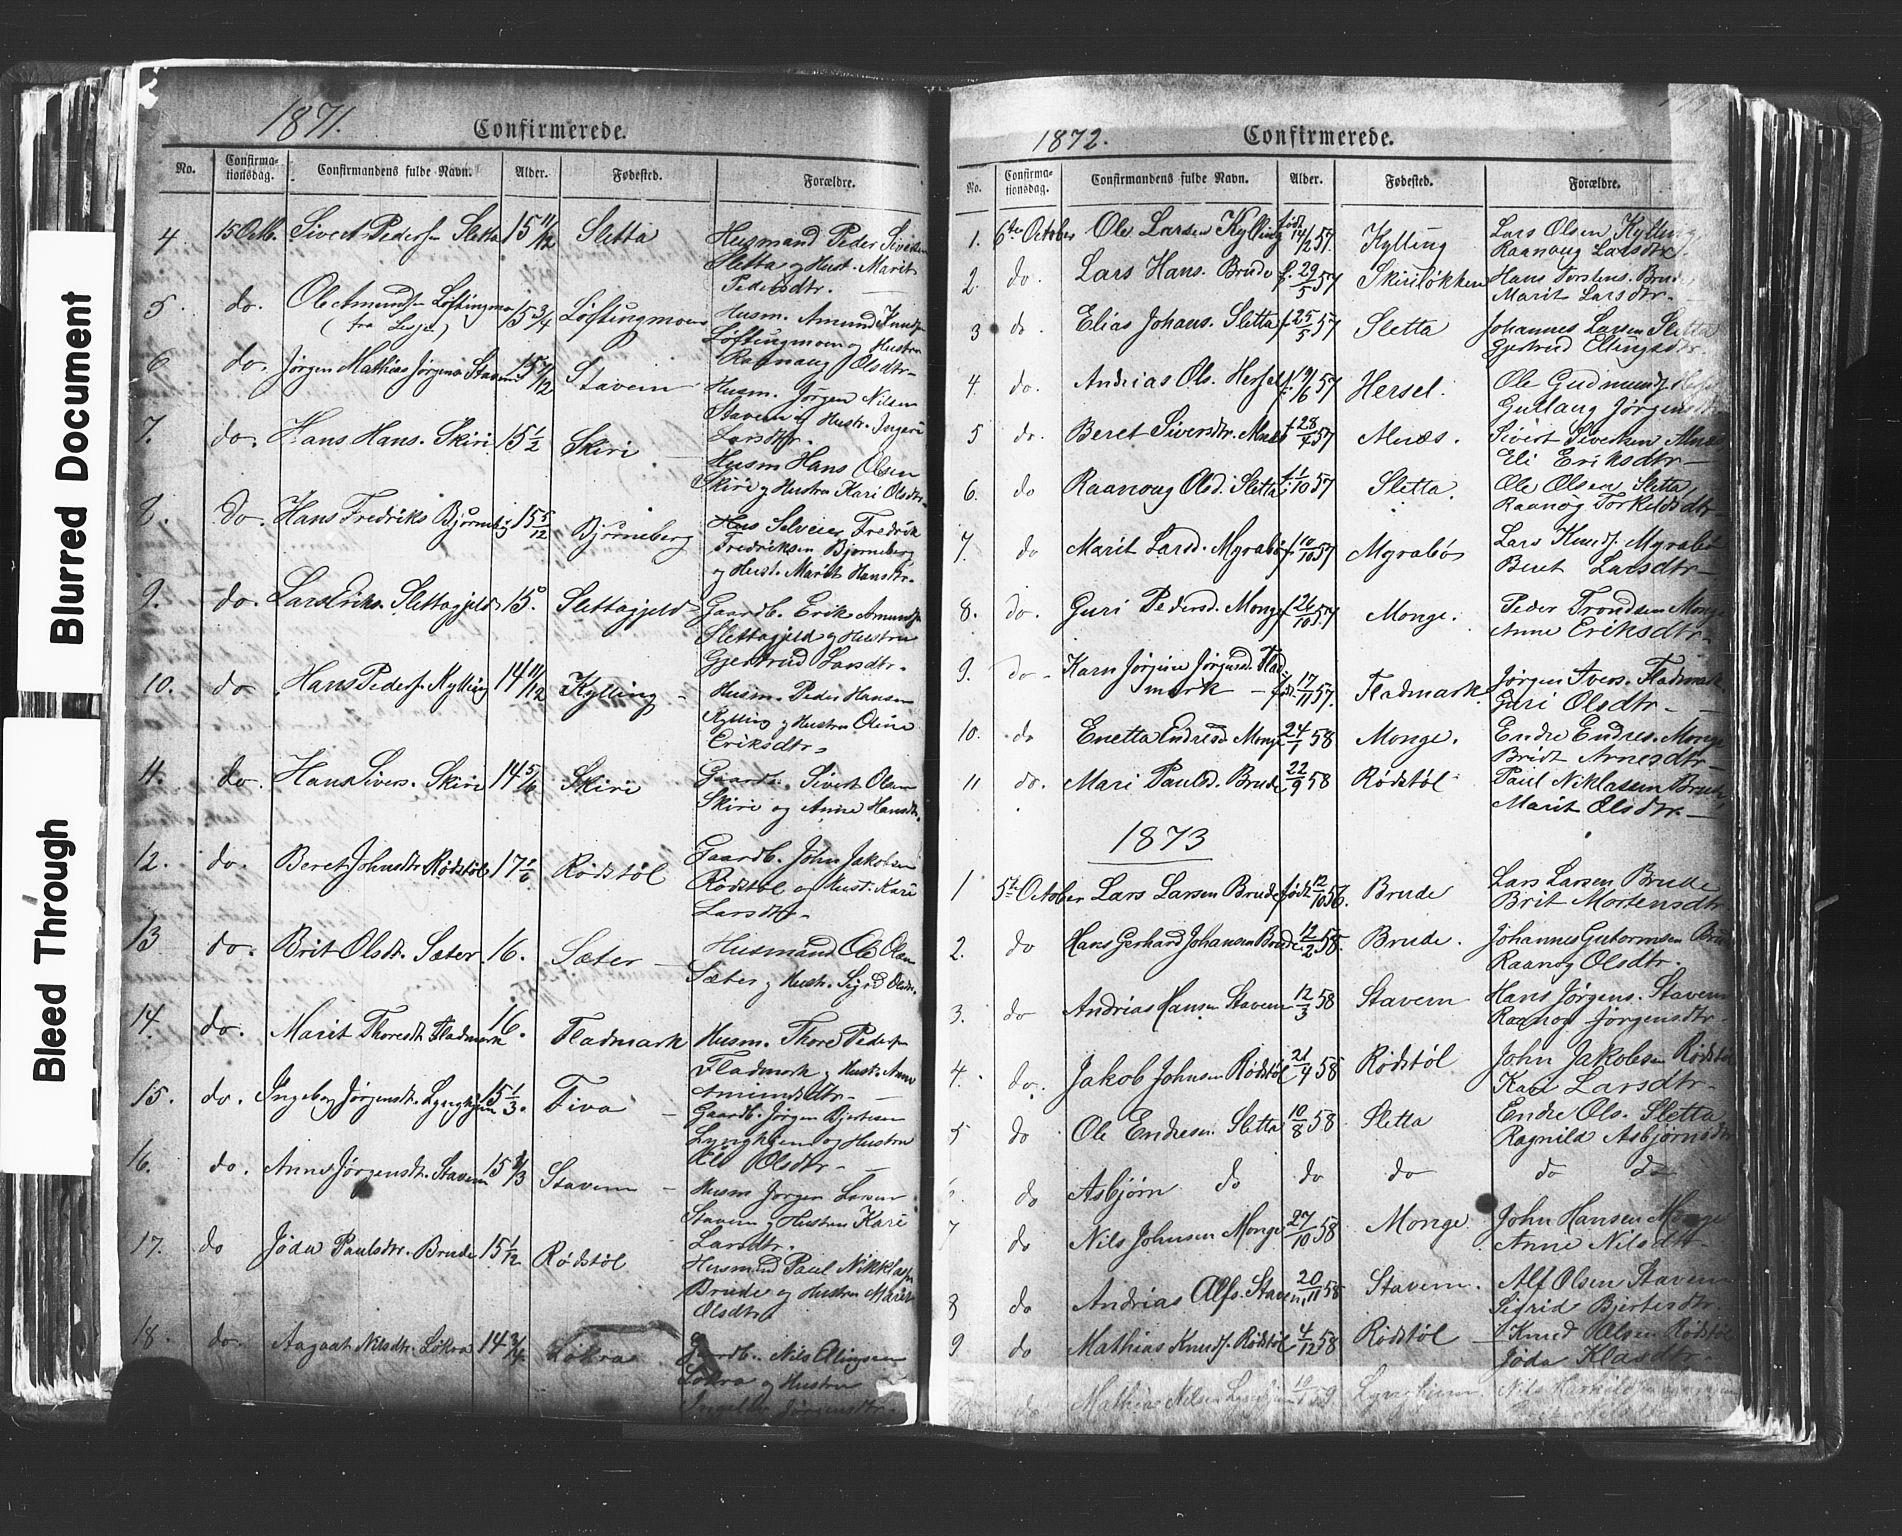 Blurred Document
Bleed Through
1871.
Confirmerede.
No. Confirma-tionsdag. Confirmandens fulde Navn. Alder. Fødested. Forældre.
4 15 Octb. Sivert Peders. Sletta 15 11/12 Sletta Husmand Peder Sivertsen
Sletta og Hust. Marit
Pedersdtr. —
5. do. Ole Amunds. Løftingmo 15 3/4 Løftingmoen Husm. Amund Knuds.
(fra Lesja) Løftingmoen og Hustru
Raanaug Olsdtr.
6 do. Jørgen Mathias Jørgens. Stavem 15 7/12 Stavem Husm. Jørgen Nilsen
Stavem og Hustr. Ingeri
Larsdtr.
7. do. Hans Hans. Skiri 15 1/2 Skiri Husm Hans Olsen
Skiri og Hustru Kari Olsdtr.
8. do. Hans Fredriks Bjørneb. 15 5/12 Bjørneberg Selveier Fredrik
Fredriksen Bjørneberg
og Hust. Marit Hansdtr.
9. do. Lars Eriks. Slettagjeld 15. Slettagjeld Gaardb. Erik Amunds.
Slettagjeld og Hustru
Gjertrud Larsdtr.
10. do Hans Peders. Kylling 14 11/12 Kylling — Husm. Peder Hansen
Kylling og Hustru Oline
Eriksdtr.
11. do. Hans Sivers. Skiri 14 5/6 Skiri Gaardb. Sivert Olsen
Skiri og Anne Hansdtr.
12. do. Beret Johnsdtr Rødstøl 17 Rødstøl Gaardb. John Jakobsen
Rødstøl og Hust. Kari
Larsdtr.
13 do. Brit Olsdtr. Sæter 16. Sæter — Husmand Ole Olsen
Sæter og Hustr. Sigrd Olsdtr.
14. do. Marit Thoresdtr Fladmark 16. Fladmark Husm. Thore Peders.
Fladmark og Hust. Anne
Amundsdtr. —
15. do. Ingebor Jørgensdt. Lyngheim 15 1/3. Tiva — Gaardb. Jørgen Bjertesen
Lyngheim og Hustru
Olsdtr —
16. do. Anne Jørgensdt. Stavem 15 2/3 Stavem — Husm Jørgen Larsen
Stavem og Hustru Kari
Larsdtr.
17. do Jøda Paulsdtr. Brude 15 1/12 Rødstøl Husmand Paul Niklas
Brude og Hustru Marit
Olsdtr.
18. do. Aagaat Nilsdtr. Løkra 14 3/4 Løkra Gaardb. Nils
Løkra og Hustru
Jørgensdtr.
1872.
Confirmerede.
No. Confirma-tionsdag. Confirmandens fulde Navn. Alder. Fødested. Forældre.
1. 6te October Ole Larsen Kylling født 14/2 57. Kylling Lars Olsen Kylling
Raanoug Larsdtr.
2. do. Lars Hans. Brude f. 29/5 57 Skiriløkken Hans Torstens. Brude
Marit Larsdtr.
3 do. Elias Johans. Sletta f. 25/5 57 Sletta Johannes Larsen Sletta
Gjertrud Ellingsdtr.
4. do. Andrias Ols. Hersel f. 19/6 57 Hersel. Ole Gudmunds.
Gullaug Jørgensdtr
5 do. Beret Siversdtr. f. 28/7 57 Alnæs. Sivert Siversen Alnæs
Eli Eriksdtr —
6. do Raanoug Olsd. Sletta f. 1/10 57 Sletta. Ole Olsen Sletta
Raanog Torkildsdtr
7. do Marit Larsd. Myrabø f. 10/10 57 Myrabø Lars Knuds. Myrabø
Beret Larsdtr —
8. do. Guri Pedersd. Monge f. 26/10 57 Monge. Peder Trondsen Monge
Anne Eriksdtr.
9. do. Karn Jørgine Jørgensd. Flad-
mark — f. 17/11 57. Fladmark Jørgen Ivers. Fladmark
Guri Olsdtr —
10. do Enetta Endresd. Monge 24/1 58 Monge. Endre Endres. Monge
Bridt Arnesdtr —
11 do. Mari Paulsd. Brude 22/9 58 Rødstøl Paul Niklasen Brude
Marit Olsdtr. —
1873
1 5te October Lars Larsen Brude født 12/10 56. Brude Lars Larsen Brude
Brit Mortensdtr
2. do Hans Gerhard Johansen Brude 12/2 58. Brude. Johannes Gutormsen Brude
Raanog Olsdtr.
3. do Andrias Hansen Stavem 12/3 58 Stavem Hans Jørgens. Stavem
Raanog Jørgensdtr.
4. do. Jakob Johnsen Rødstøl 21/4 58 Rødstøl John Jakobsen Rødstøl
Kari Larsdtr.
5 do Ole Endresen Sletta 10/8 58 Sletta Endre Ols. Sletta
Ragnild Asbjørnsdtr
6. do Asbjørn do do do do do
7 do Nils Johnsen Monge 27/10 58 Monge John Hansen Monge
Anne Nilsdtr.
8 do Andrias Alfs. Stavem 20/11 58 Stavem. Alf Olsen Stavem
Sigrid Bjertesdtr.
9. do Mathias Knuds. Rødstøl 4/12 58 Rødstøl Knud Olsen Rødstøl
Jøda Klasdtr.
do Mathias Nilsen Lyngheim 10/1 59 Lyngheim. Nils